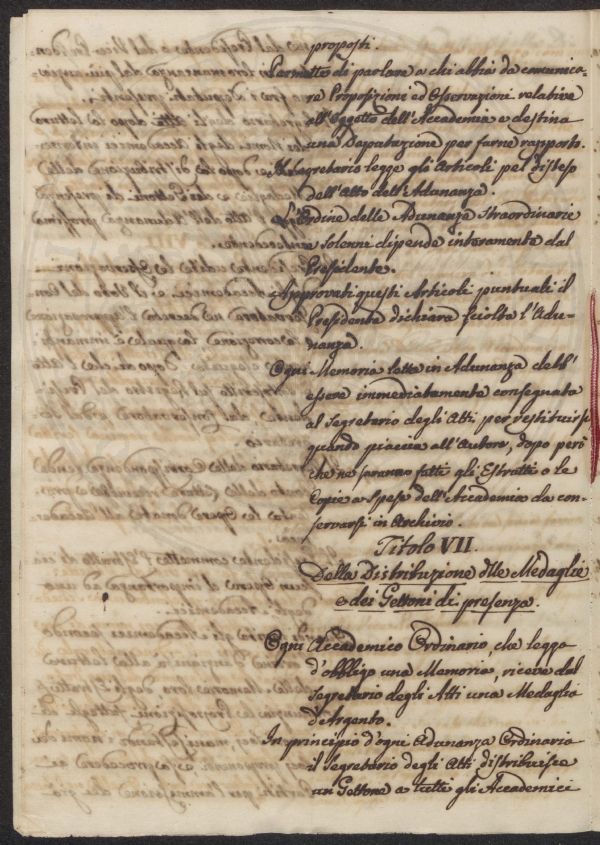 proposti.
Permette di parlare a chi abbia da comunica-
re Proposizioni ed Osservazioni relative
all'Oggetto dell'Accademia e destina
una Deputazione per farne rapporto.
Il Segretario legge gli Articoli pel disteso
dell'Atto dell'Adunanza.
L'Ordine delle Adunanze Straordinarie
e Solenni dipende interamente dal
Presidente.
Approvati questi Articoli puntuali il
Presidente dichiara sciolta l'Adu-
nanza.
Ogni Memoria letta in Adunanza debb'
essere immediatamente consegnata
al Segretario degli Atti per restituirsi
quando piaccia all'Autore, dopo però
che ne saranno fatti gli Estratti o le
Copie a spese dell'Accademia da con-
servarsi in Archivio.
Titolo VII.
Della Distribuzione dlle Medaglie
e dei Gettoni di presenza.
Ogni Accademico Ordinario, che legga
d'obbligo una Memoria, riceve dal
Segretario degli Atti una Medaglia
d'Argento.
In principio d'ogni Adunanza Ordinaria
il Segretario degli Atti distribuisce
un Gettone a tutti gli Accademici